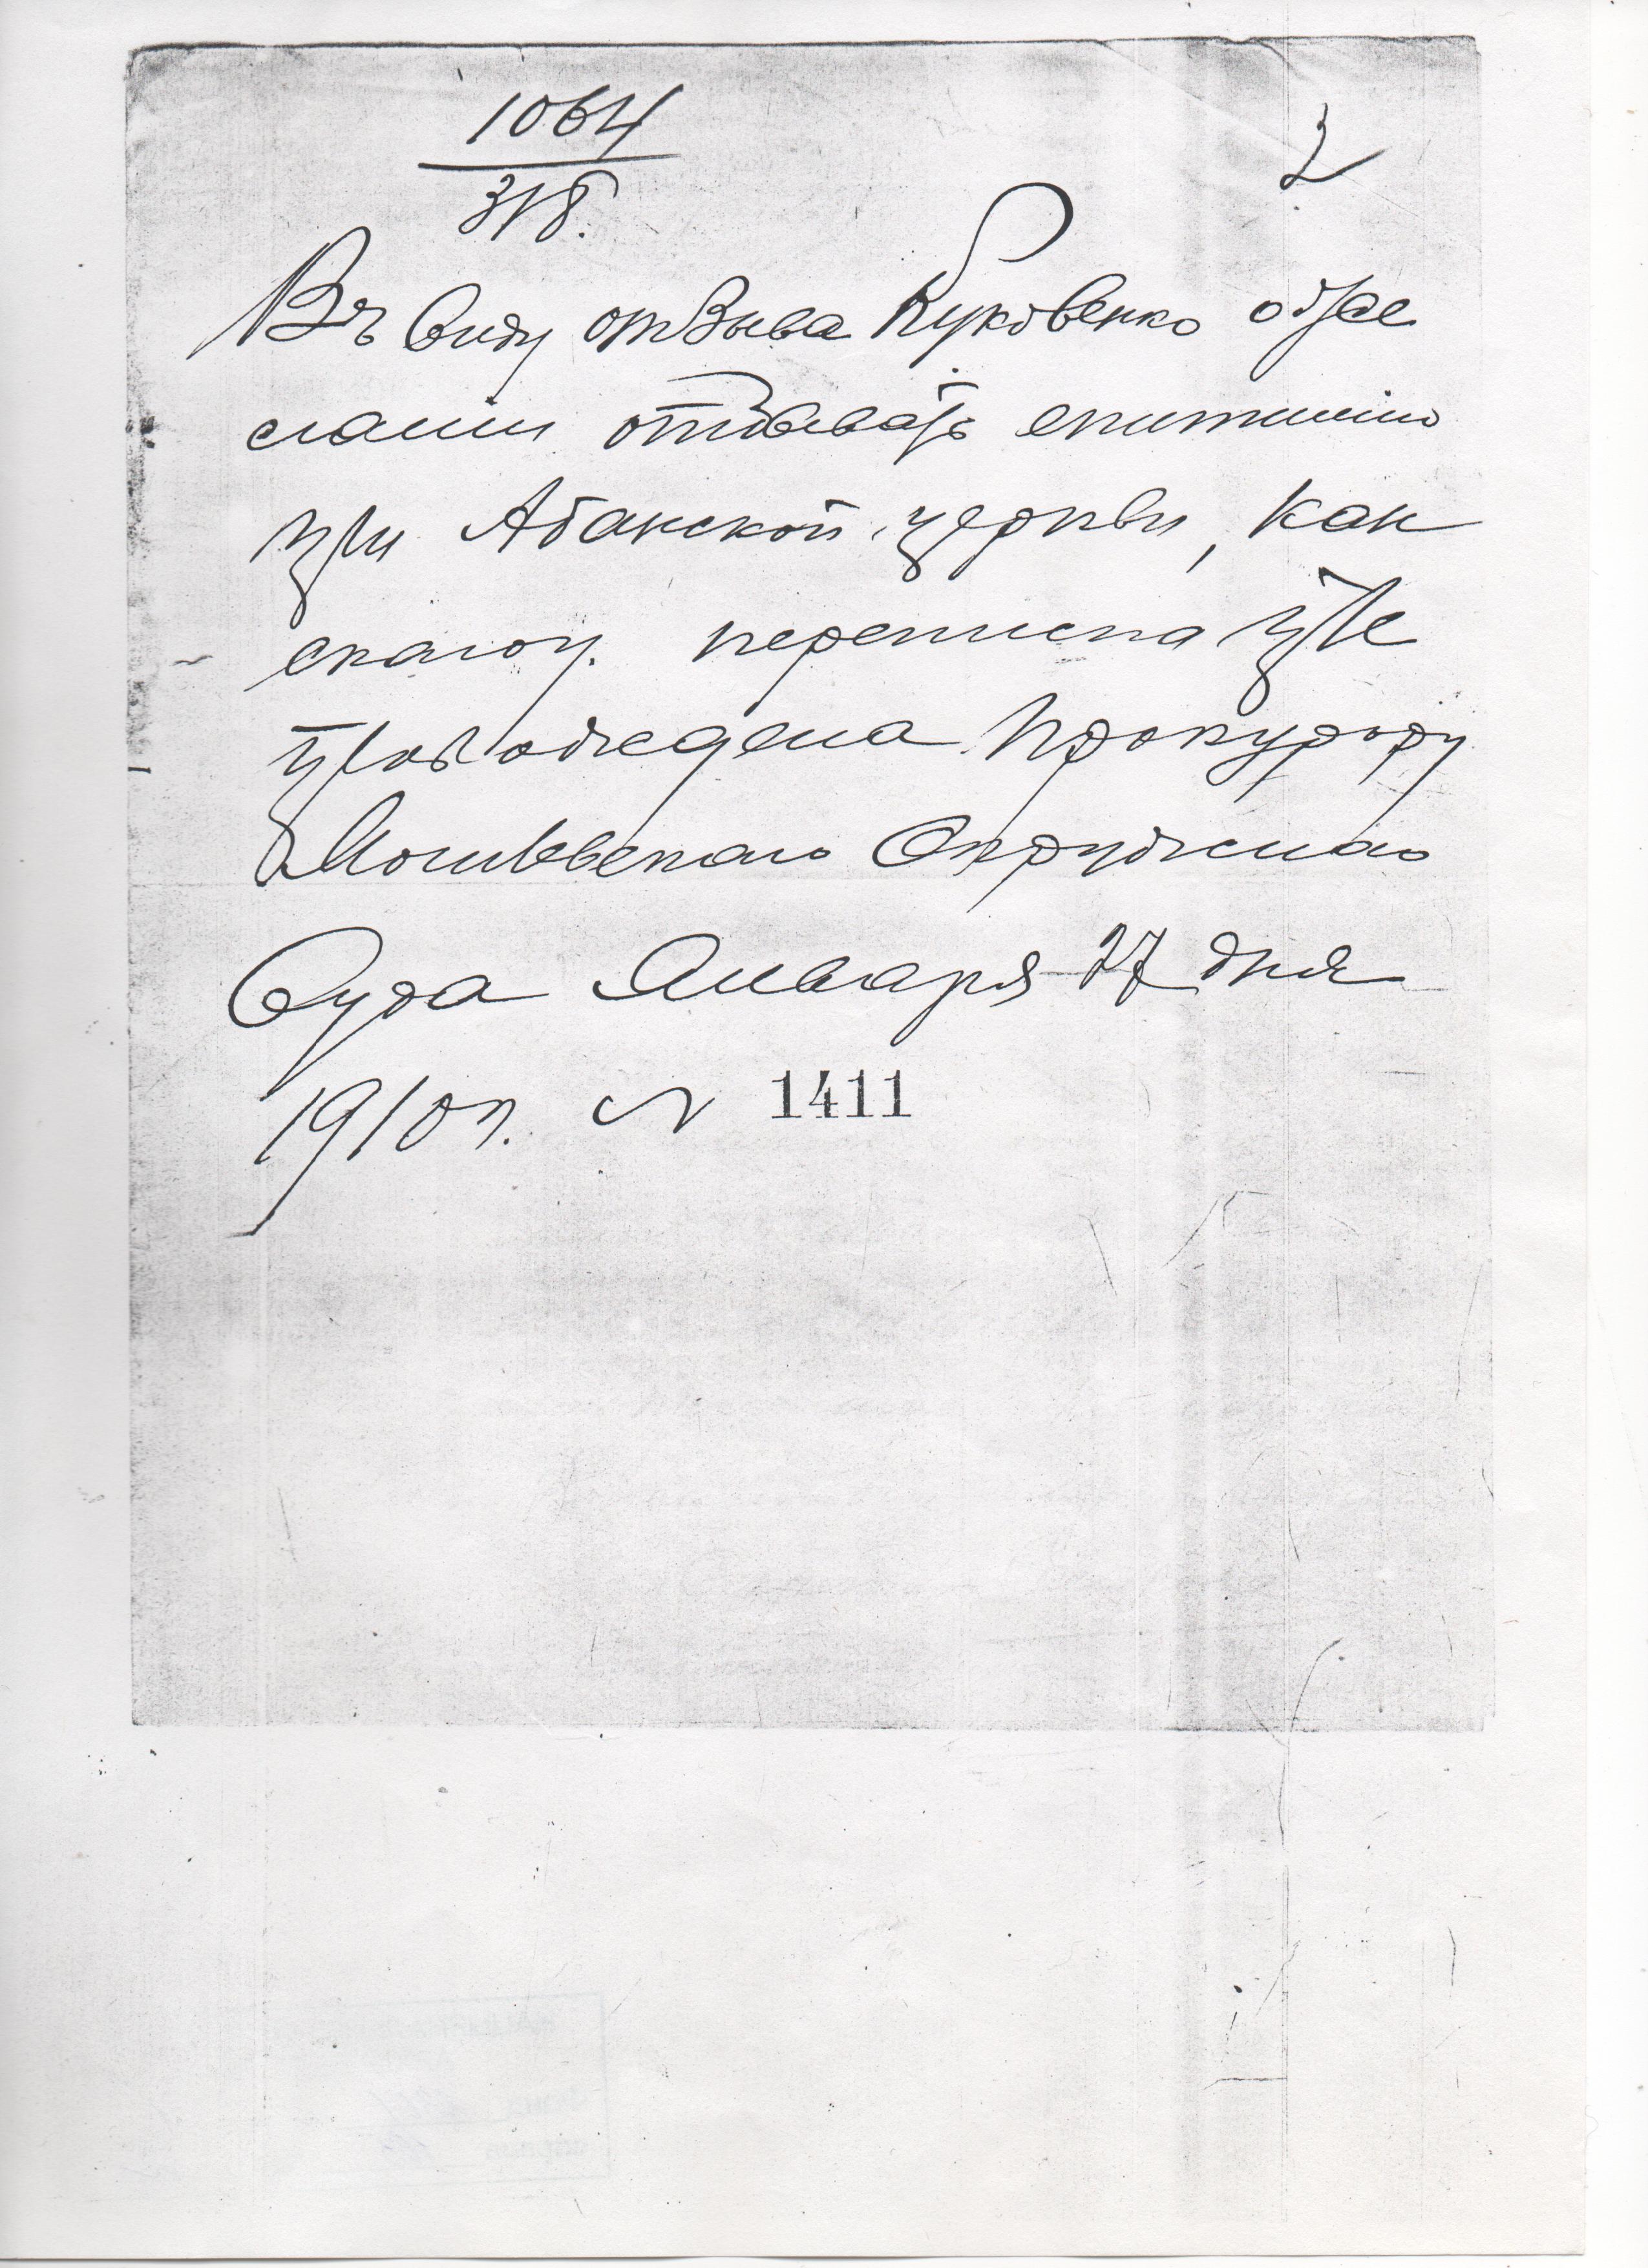 1064
318.
2
Въ виду отзыва Куковенко о же
лании отбывать епитимию
при Абанской церкви, как
скаго у. переписка уже
препровождена Прокурору
Могилевскаго Окружнаго
Суда Января 27 дня
1910 г. № 1411